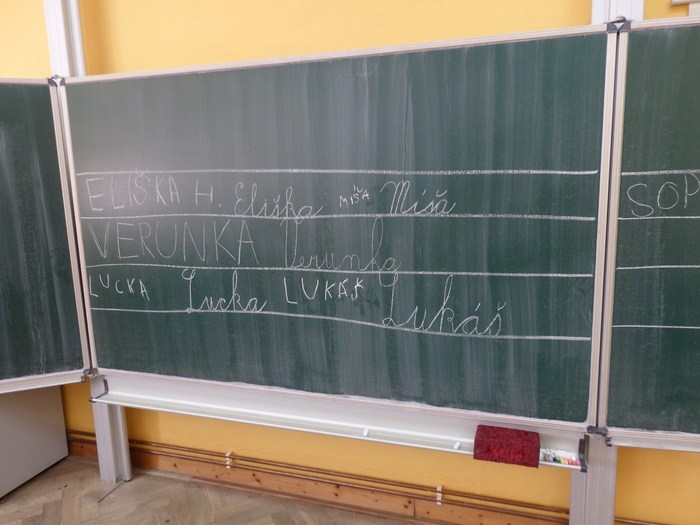 ELIŠKA H. Eliška MÍŠA Míša
VERUNKA Verunka
LUCKA Lucka LUKÁŠ Lukáš
SOP